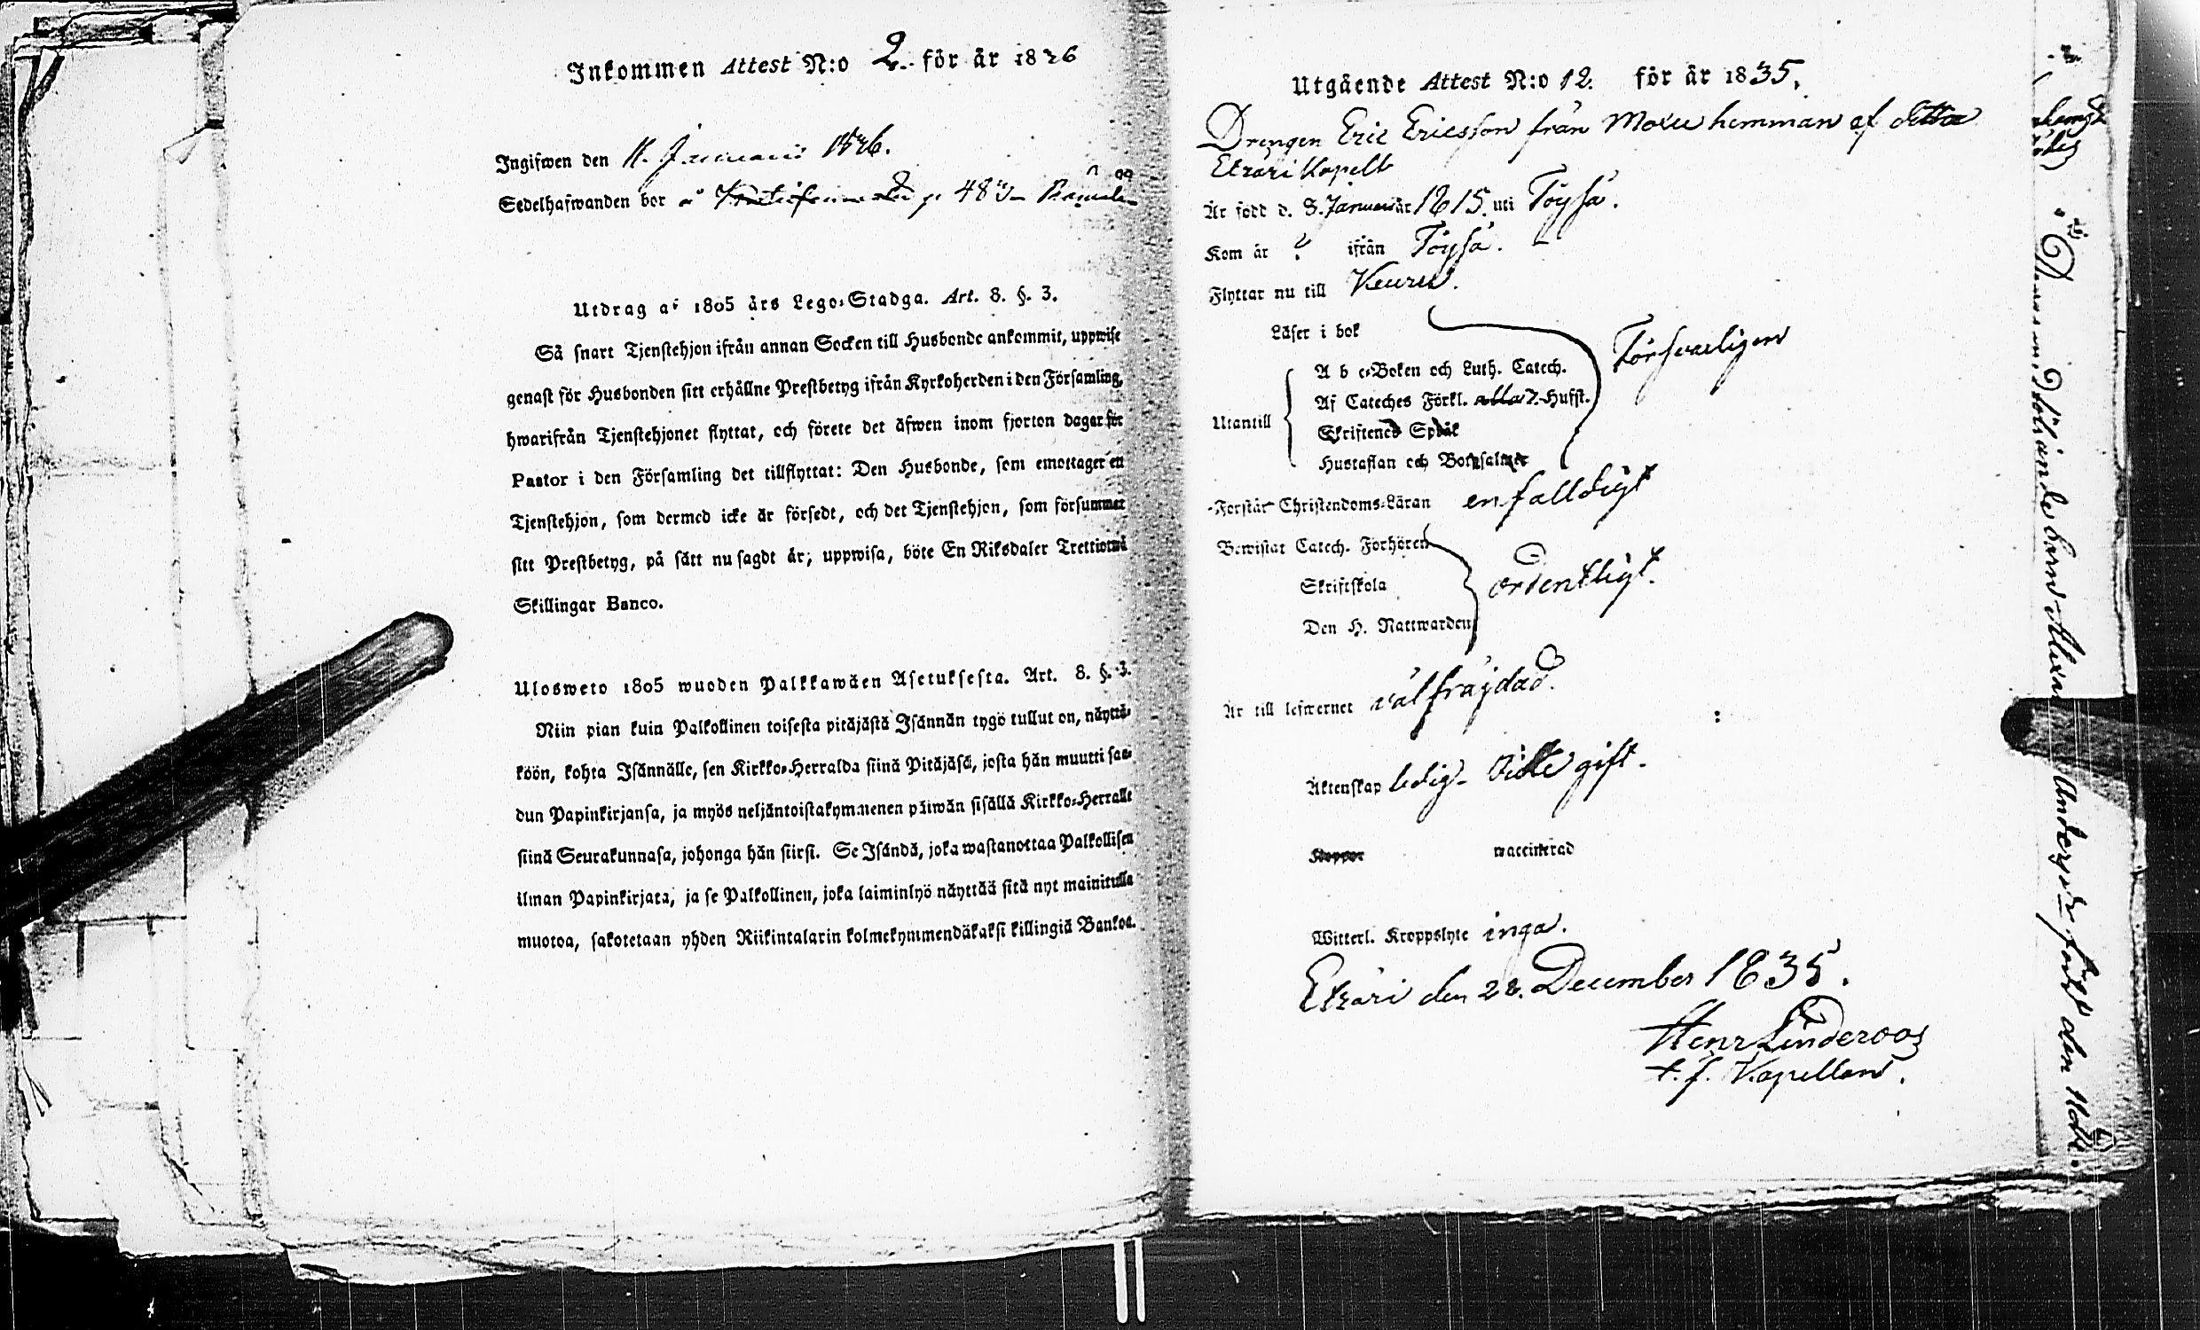 Inkommen Attest N:o 2. för år 1836
Ingifwen den 11. Januarii 1836.
Sedelhafwanden bor å p. 483
Utdrag af 1805 års Lego-Stadga. Art. 8. §. 3.
Så snart Tjenstehjon ifrån annan Socken till Husbonde ankommit, uppwise
genast för Husbonden sitt erhållne Prestbetyg ifrån Kyrkoherden i den Församling,
hwarifrån Tjenstehjonet flyttat, och förete det äfwen inom fjorton dagar för
Pastor i den Församling det tillflyttat: Den Husbonde, som emottager en
Tjenstehjon, som dermed icke är försedt, och det Tjenstehjon, som försummar
sitt Prestbetyg, på sätt nu sagdt är, uppwisa, böte En Riksdaler Trettiotwå
Skillingar Banco.
Ulosweto 1805 wuoden Palkkawäen Asetuksesta. Art. 8. §. 3.
Niin pian kuin Palkollinen toisesta pitäjästä Isännän tygö tullut on, näyttä-
köön, kohta Isännälle, sen Kirkko-Herralda siinä Pitäjäsä, josta hän muutti saa-
dun Papinkirjansa, ja myös neljäntoistakymmenen päiwän sisällä Kirkko-Herralle
siinä Seurakunnasa, johonga hän siirsi. Se Isändä, joka wastanottaa Palkollisen
ilman Papinkirjata, ja se Palkollinen, joka laiminlyö näyttää sitä nyt mainitulla
muotoa, sakotetaan yhden Riikintalarin kolmekymmendäkaksi killingiä Bankoa.
Utgående Attest N:o 12. för år 1835.
Drengen Eric Ericsson från hemman af detta
Etzäri Kapell
Är född d. 8. Januari år 1815. uti Töysä.
Kom år ? ifrån Töysä.
Flyttar nu till Keuru.
Läser i bok
A b c-Boken och Luth. Catech.
Af Cateches Förkl. alla 7.-Hufst.
Utantill
Skriftenes Språk
Hustaflan och Botpsalmer
Försvarligen
Förstår Christendoms-Läran enfalldigt
Bewistat Catech. Förhören
Skriftskola
Den H. Nattwarden
ordentligt.
Är till lefwernet välfräjdad.
Äktenskap ledig- gift-
Koppor vaccinerad
Witterl. Kroppslyte inga.
Etzäri den 28. December 1835.
Henr Linderoos
t. f. Kapellan.
född den